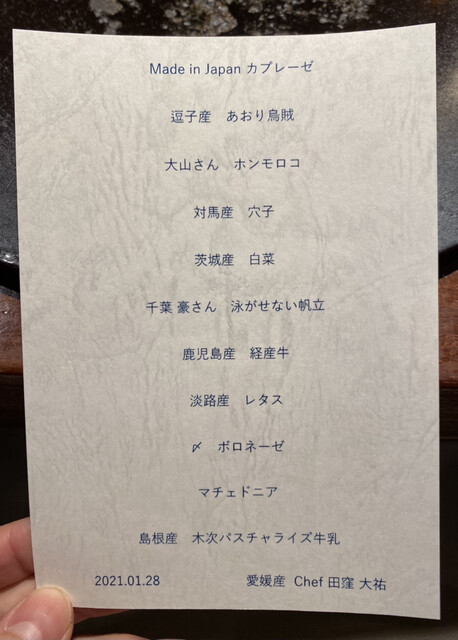 Made in Japan カプレーゼ
逗子産　あおり烏賊
大山さん　ホンモロコ
対馬産　穴子
茨城産　白菜
千葉 豪さん　泳がせない帆立
鹿児島産　経産牛
淡路産　レタス
〆　ボロネーゼ
マチェドニア
島根産　木次パスチャライズ牛乳
2021.01.28　愛媛産 Chef 田窪 大祐